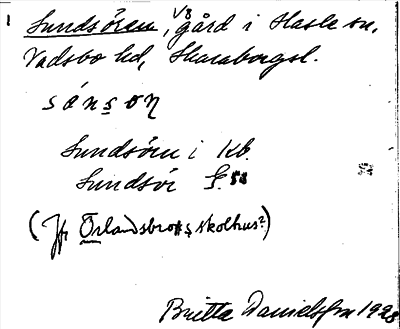 1
Sundsören, 1/8 gård i Hasle sn,
Vadsbo hd, Skaraborgsl.
sánsøn
Sundsören i Kb.
Sundsör
(Jfr Örlandsbros skolhus?)
Britta Danielsson 1928